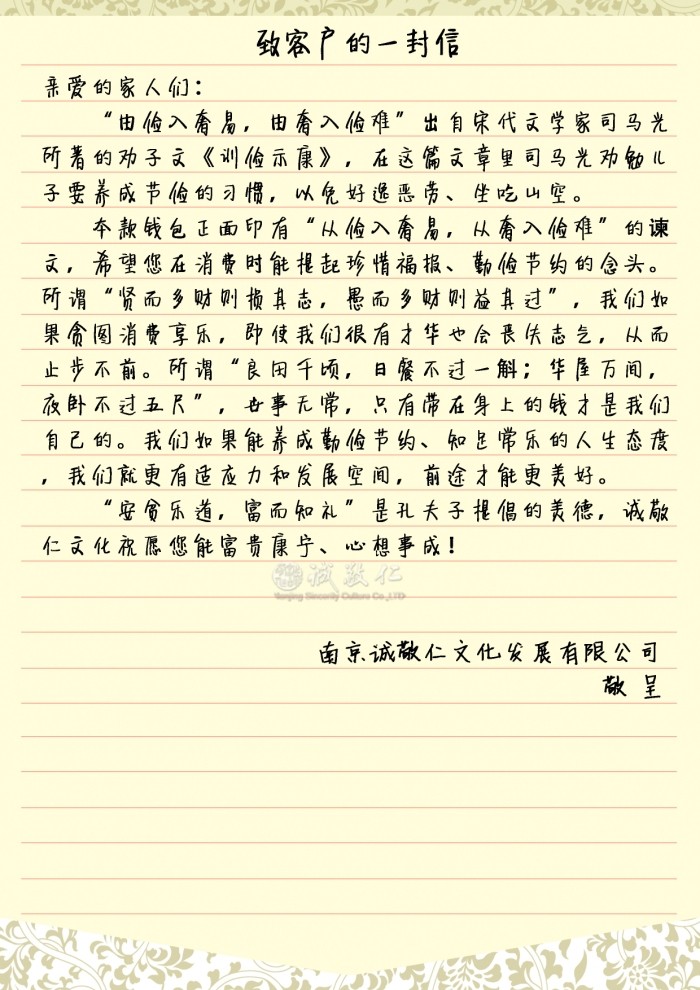 致客户的一封信
亲爱的家人们：
“由俭入奢易，由奢入俭难”出自宋代文学家司马光
所著的劝子文《训俭示康》，在这篇文章里司马光劝勉儿
子要养成节俭的习惯，以免好逸恶劳、坐吃山空。
本款钱包正面印有“从俭入奢易，从奢入俭难”的谏
文，希望您在消费时能提起珍惜福报、勤俭节约的念头。
所谓“贤而多财则损其志，愚而多财则益其过”，我们如
果贪图消费享乐，即使我们很有才华也会丧失志气，从而
止步不前。所谓“良田千顷，日餐不过一斛；华屋万间，
夜卧不过五尺”，世事无常，只有带在身上的钱才是我们
自己的。我们如果能养成勤俭节约、知足常乐的人生态度
，我们就更有适应力和发展空间，前途才能更美好。
“安贫乐道，富而知礼”是孔夫子提倡的美德，诚敬
仁文化祝愿您能富贵康宁、心想事成！
诚敬仁
Nanjing Sincerity Culture Co.,LTD
南京诚敬仁文化发展有限公司
敬呈